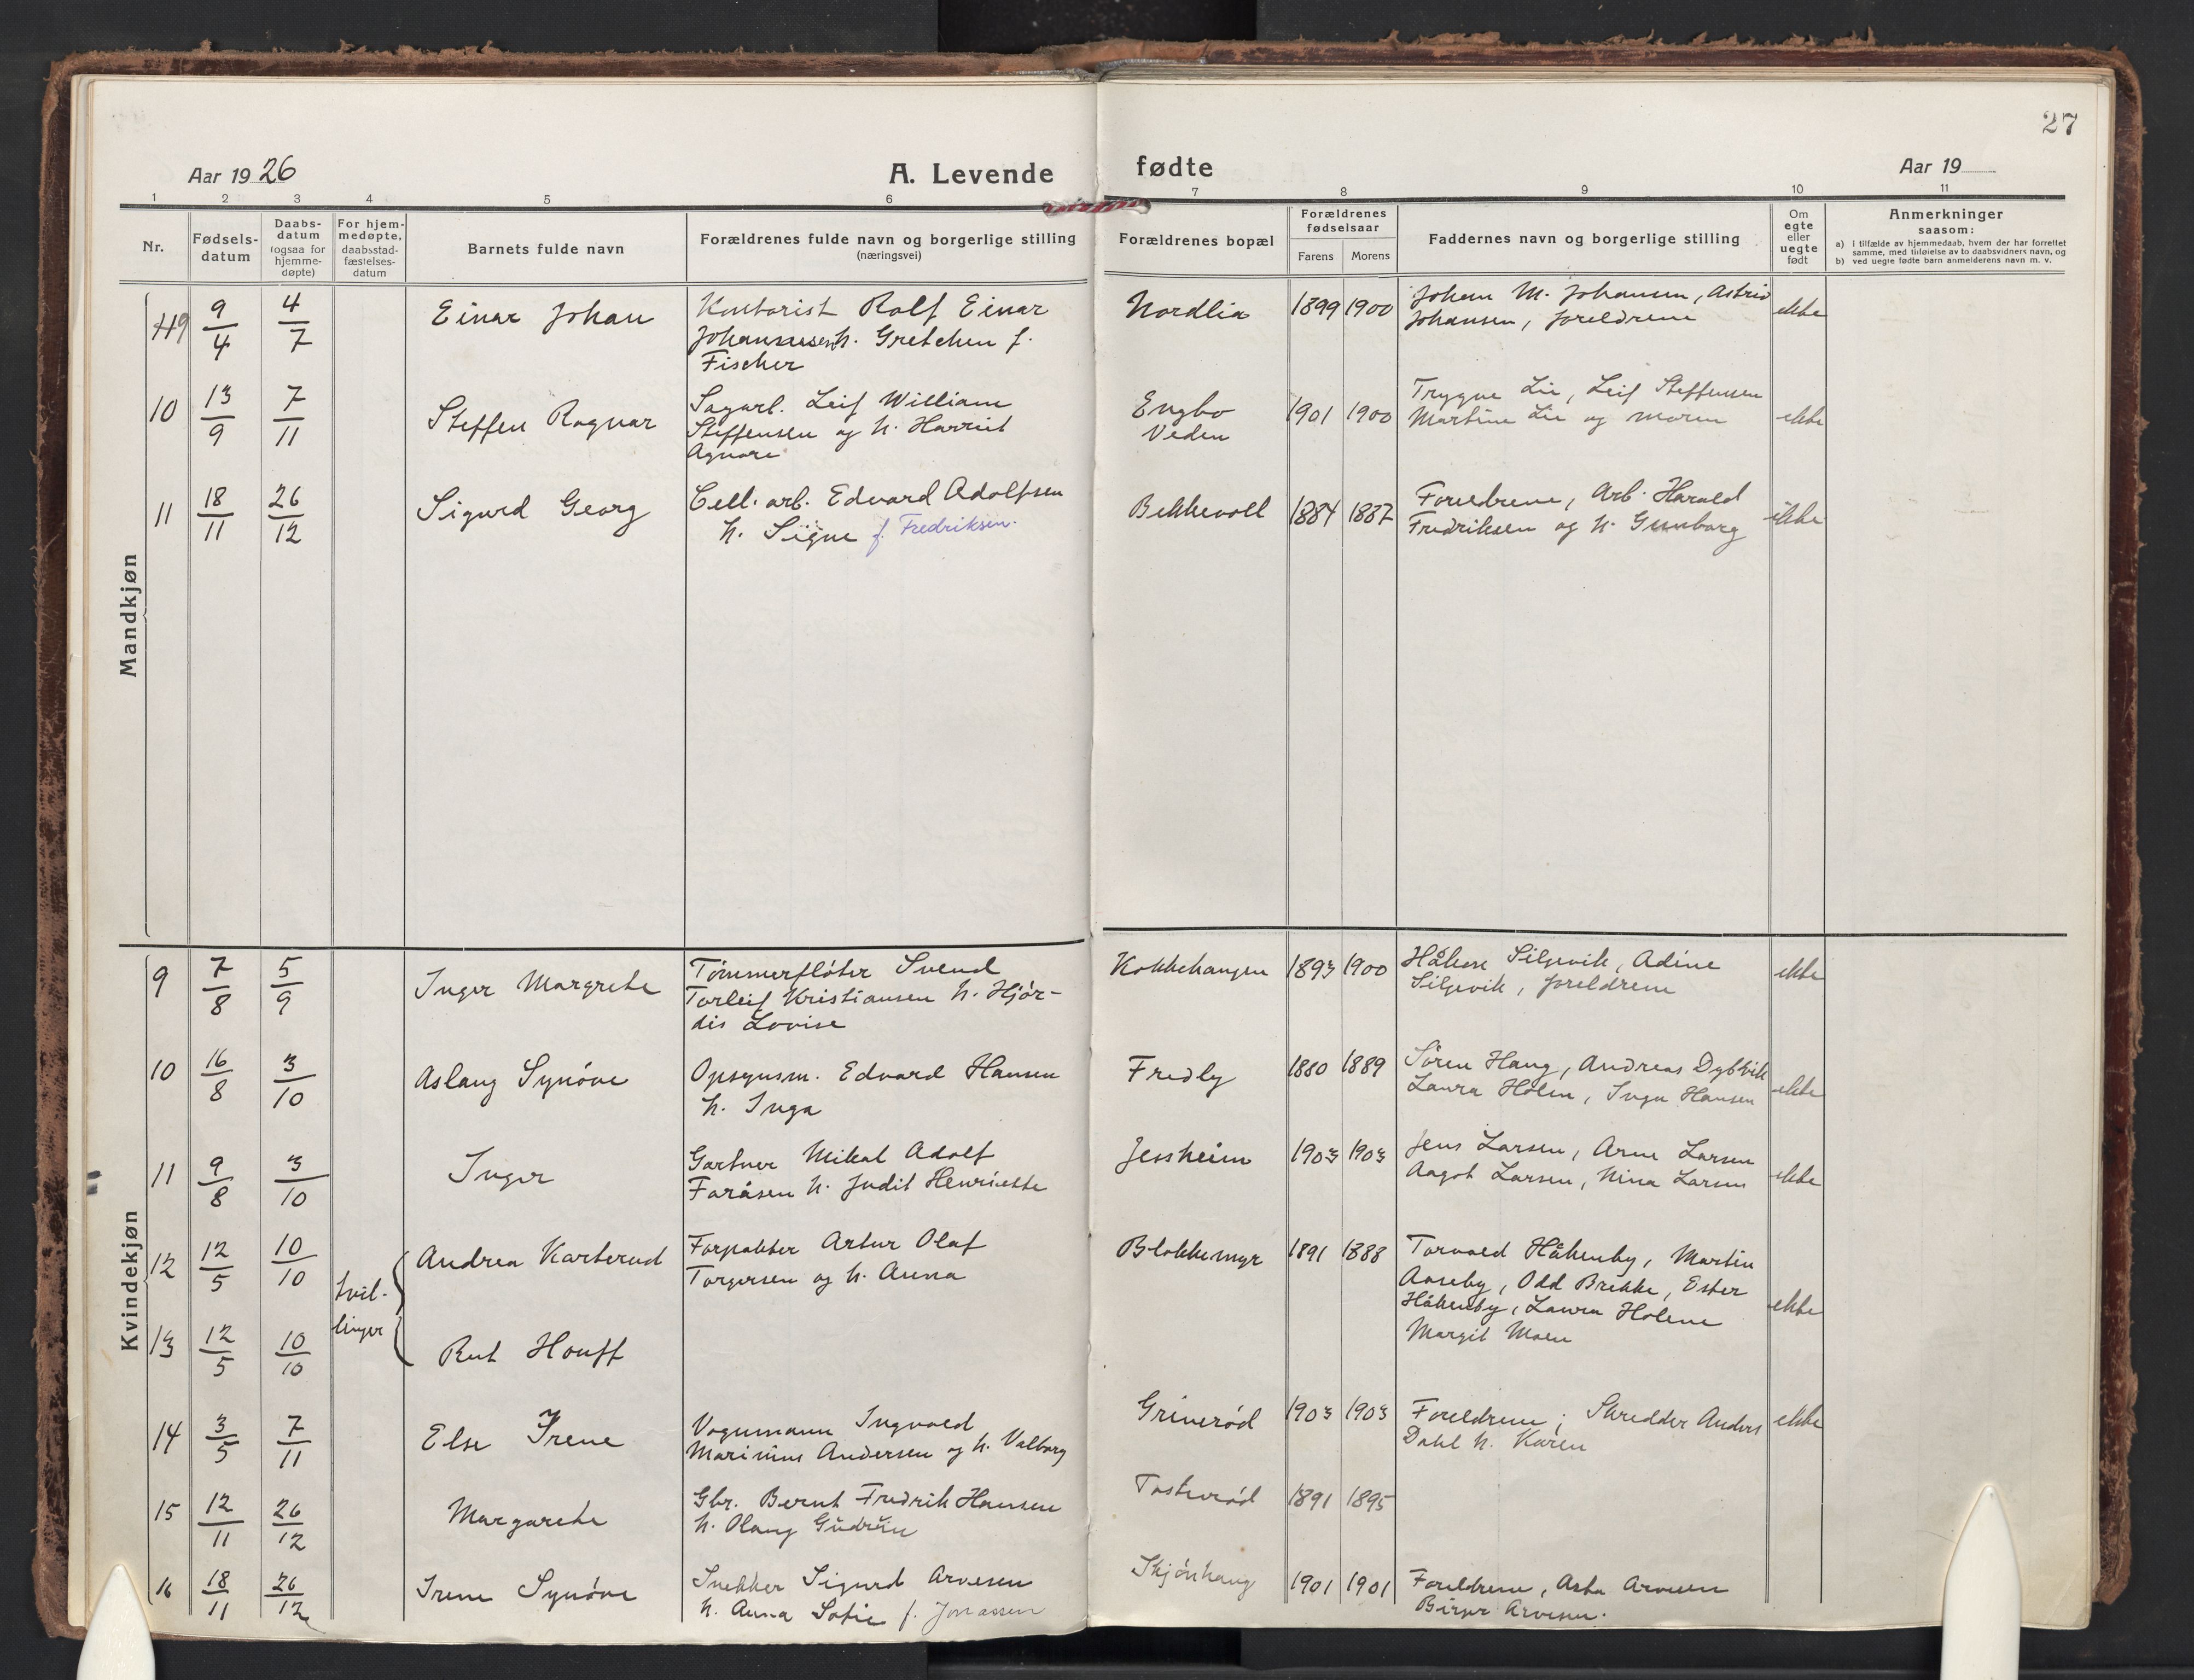 27
Aar 1926
A. Levende
fødte
Aar 19
1 2 3 4 5 6 7 8 9 10 11
Nr.
Fødsels-
datum
Daabs-
datum
(ogsaa for
hjemme-
døpte)
For hjem-
medøpte,
daabsstad-
fæstelses-
datum
Barnets fulde navn
Forældrenes fulde navn og borgerlige stilling
(næringsvei)
Forældrenes bopæl
Forældrenes
fødselsaar
Farens Morens
Faddernes navn og borgerlige stilling
Om
egte
eller
uegte
født
Anmerkninger
saasom:
a) i tilfælde av hjemmedaab, hvem der har forrettet
samme, med tilføielse av to daabsvidners navn, og
b) ved uegte fødte barn anmelderens navn m. v.
Mandkjøn
9 9/4 4/7 Einar Johan
Kontorist Rolf Einar
Johannesen h. Gretchen f.
Fischer
Nordlia 1899 1900
Johan M. Johansen, Astrid
Johansen, foreldrene
ekte
10 13/9 7/11 Steffen Ragnar
Sagarb. Leif William
Steffensen og h. Harriet
Agnore
Engbo
Veden
1901 1900
Trygve Lie, Leif Steffensen
Martine Lie og moren
ekte
11 18/11 26/12 Sigurd Georg
Cell. arb. Edvard Adolfsen
h. Signe f. Fredriksen.
Bekkevoll 1884 1887
Foreldrene, Arb. Harald
Fredriksen og h. Gunborg
ekte
Kvindekjøn
9 7/8 5/9 Inger Margrete
Tømmerfløter Svend
Torleif Kristiansen h. Hjør-
dis Lovise
Kokkehaugen 1893 1900
Håkon Siljevik, Adine
Siljevik, foreldrene
ekte
10 16/8 3/10 Aslaug Synøve
Opsynsm. Edvard Hansen
h. Inga
Fredly 1880 1889
Søren Haug, Andreas Dybvik
Laura Holen, Inga Hansen
ekte
11 9/8 3/10 Inger
Gartner Mikal Adolf
Faråsen h. Judit Henriette
Jessheim 1903 1903
Jens Larsen, Arne Larsen
Aagot Larsen, Nina Larsen
ekte
12 12/5 10/10 tvil-
linger
Andrea Karterud
Forpakter Artur Olaf
Torgersen og h. Anna
Blokkemyr 1891 1888
Torvald Håkenby, Martin
Aaseby, Odd Brekke, Ester
Håkenby, Laura Holene
Margit Moen
ekte
13 12/5 10/10 Rut Houff
14 3/5 7/11 Else Irene
Vognmann Ingvald
Marinius Andersen og h. Valborg
Grinerød 1903 1903
Foreldrene; Skredder Anders
Dahl h. Karen
ekte
15 12/11 26/12 Margarete
Gbr. Bernt Fredrik Hansen
h. Olaug Gudrun
Tosterød 1891 1895
16 18/11 26/12 Irene Synøve
Snekker Sigurd Arvesen
h. Anna Sofie f. Jonassen
Skjønhaug 1901 1901
Foreldrene, Asta Arvesen
Birger Arvesen.